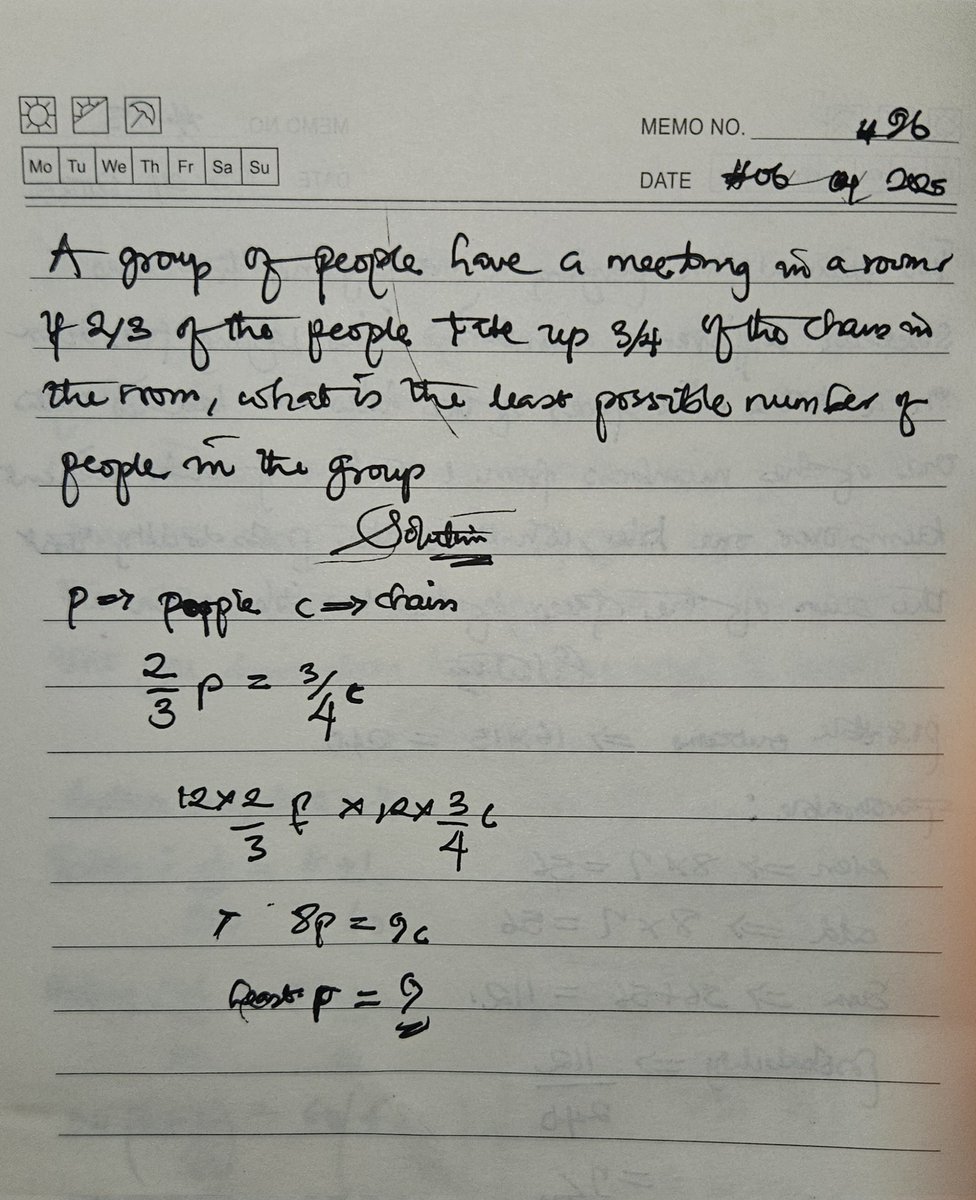 MEMO NO. #96
Mo Tu We Th Fr Sa Su
DATE #06 04 2025
A group of people have a meeting in a room
If 2/3 of the people take up 3/4 of the chairs in
the room, what is the least possible number of
people in the group
Solution
p => people c => chairs
2/3 p = 3/4 c
12 x 2/3 p x 12 x 3/4 c
8p = 9c
least p = 9